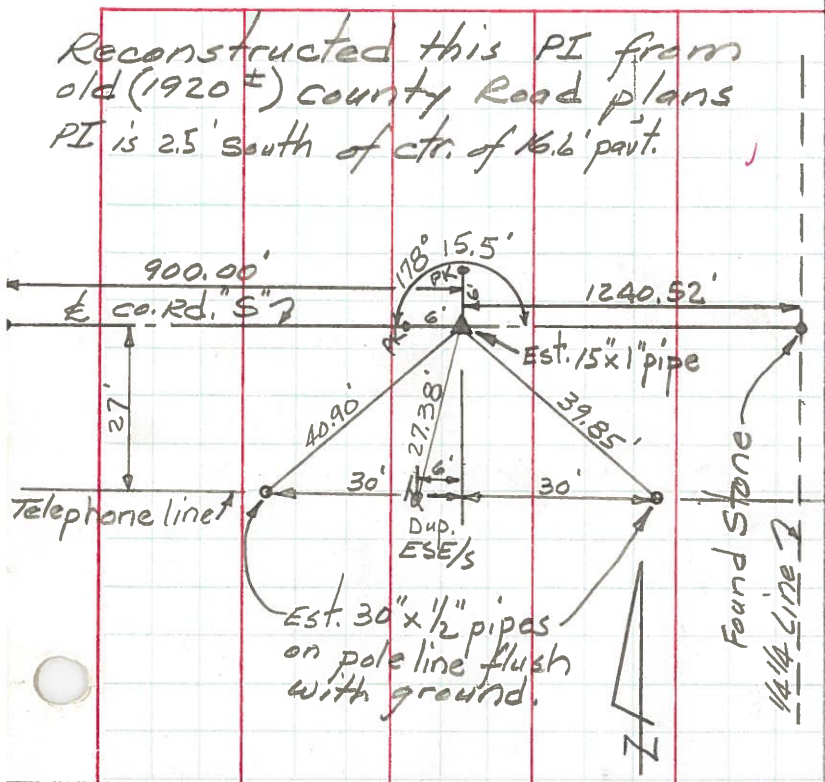 Reconstructed this PI from
old (1920±) county Road plans
PI is 2.5' south of ctr. of 16.6' pavt.
900.00'
178° 15.5'
PK
6'
1240.52'
℄ co. Rd. "S"
6'
PK
Est. 15"x1" pipe
27'
40.90'
27.38'
39.85'
30'
6'
30'
Telephone line
Dup.
ESE/S
Est. 30"x1/2" pipes
on pole line flush
with ground.
Found Stone
1/4 1/4 Line